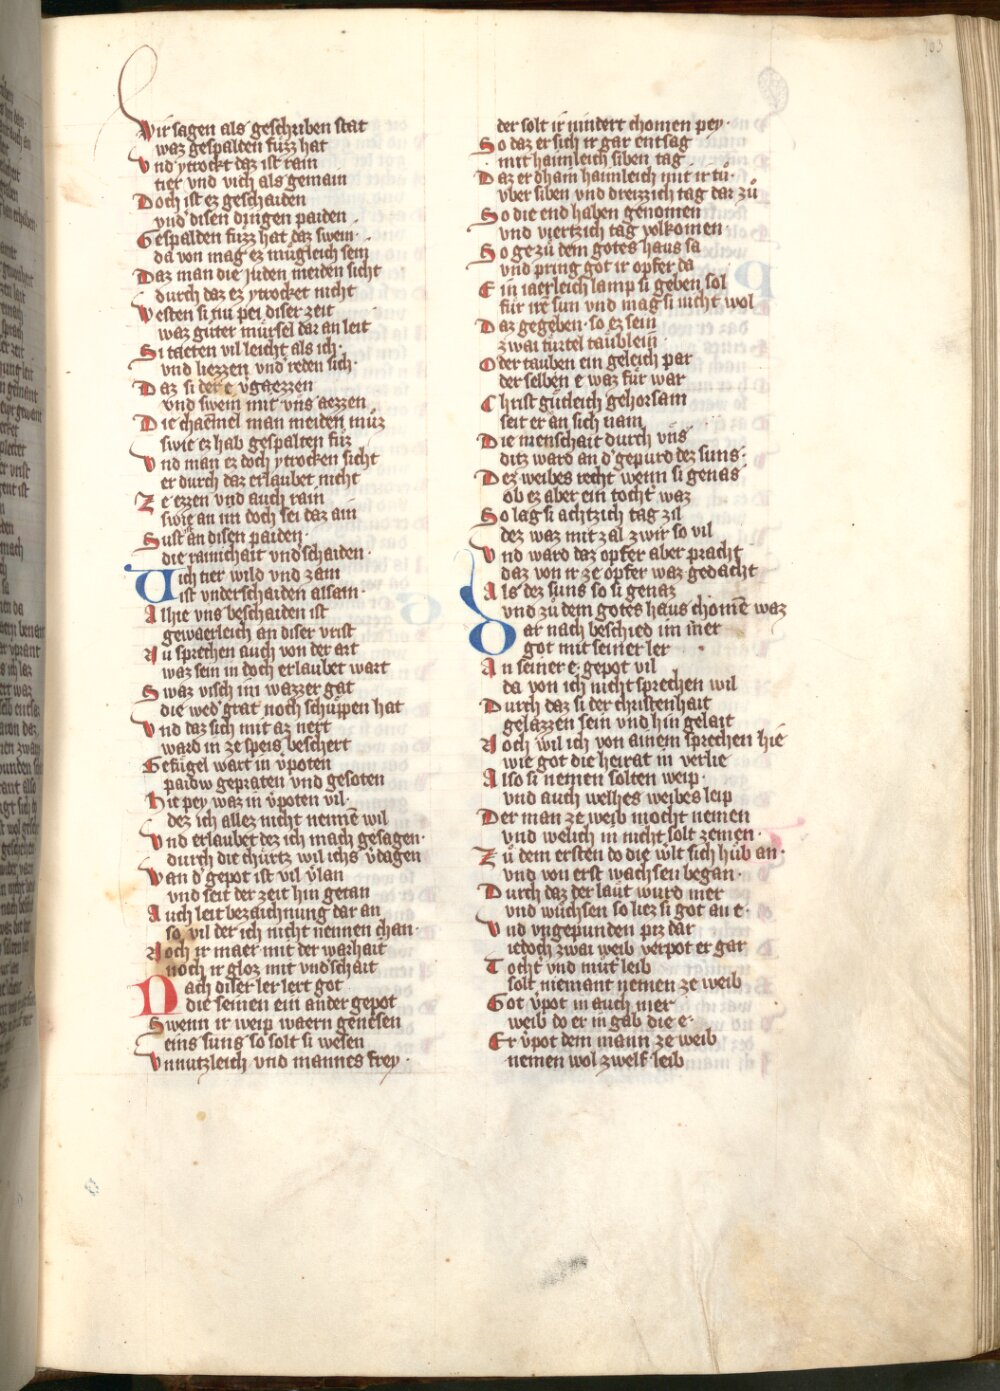 Wir sagen als geschriben stat
waz gespalden fuzz hat
Vnd ytrockt daz ist rain
tier vnd vich als gemain
Doch ist ez geschaiden
vnd disen dingen paiden
Gespalden fuzz hat daz swein
da von mag ez mugleich sein
Daz man die juden meiden sicht
durch daz ez ytrocket nicht
Westen si nu pei diser zeit
waz guter mursel dar an leit
Si taeten vil leicht als ich
vnd liezzen vnd reden sich
Daz si der e vgaezzen
vnd swein mit vns aezzen
Die chaemel man meiden muz
swie ez hab gespalten fuz
Vnd man ez doch ytrocken sicht
er durch daz erlaubet nicht
Ze ezzen vnd auch rain
swie an im doch sei daz ain
Sust an disen paiden
die rainichait vndschaiden
Vich tier wild vnd zam
ist vnderschaiden allsam
Alhie vns beschaiden ist
gewaerleich an diser vrist
Nu sprechen auch von der art
waz sein in doch erlaubet wart
Swaz visch im wazzer gat
die wed' grat noch schuppen hat
Vnd daz sich mit az nert
ward in ze speis beschert
Gefugel wart in vpoten
paidw gepraten vnd gesoten
Hie pey waz in vpoten vil
dez ich allez nicht nennē wil
Vnd erlaubet dez ich mach gesagen
durch die churtz wil ichs vdagen
Wan d' gepot ist vil vlan
vnd seit der zeit hin getan
Auch leit bezaichnung dar an
so vil der ich nicht nennen chan
Noch ir maer mit der warhait
noch ir gloz mit vndschait
Nach diser ler lert got
die seinen ein ander gepot
Swenn ir weip waern genesen
eins suns so solt si wesen
Vnnutzleich vnd mannes frey
der solt ir nindert chomen pey
So daz er sich ir gar entsag
mit haimleich siben tag
Daz er dhain haimleich mit ir tu
vber siben vnd dreizzich tag dar zu
So die end haben genomen
vnd viertzich tag volkomen
So ge zu dem gotes haus sa
vnd pring got ir opfer da
Ein iaerleich lamp si geben sol
fur irē sun vnd mag si nicht wol
Daz gegeben so ez sein
zwai turtel taublein
Oder tauben ein geleich par
der selben e waz fur war
Christ gutleich gehorsam
seit er an sich nam
Die menschait durch vns
ditz ward an d' gepurd dez suns
Dez weibes recht wenn si genas
ob ez aber ein tocht' waz
So lag si achtzich tag zil
dez waz mit zal zwir so vil
Vnd ward daz opfer aber pracht
daz von ir ze opfer waz gedacht
Als dez suns so si genaz
vnd zu dem gotes haus chomē waz
Dar nach beschied im mer
got mit seiner ler
An seiner e gepot vil
da von ich nicht sprechen wil
Durch daz si der christenhait
gelazzen sein vnd hin gelait
Noch wil ich von ainem sprechen hie
wie got die heirat in verlie
Also si nemen solten weip
vnd auch welhes weibes leip
Der man ze weib mocht nemen
vnd welich in nicht solt zemen
Zu dem ersten do die wlt sich hub an
vnd von erst wachsen began
Durch daz der laut wurd mer
vnd wuchsen so liez si got an e
Vnd vngepunden piz dar
iedoch zwai weib verpot er gar
Tocht' vnd mut' leib
solt niemant nemen ze weib
Got vpot in auch mer
weib do er in gab die e
Er vpot dem mann ze weib
nemen wol zwelf leib